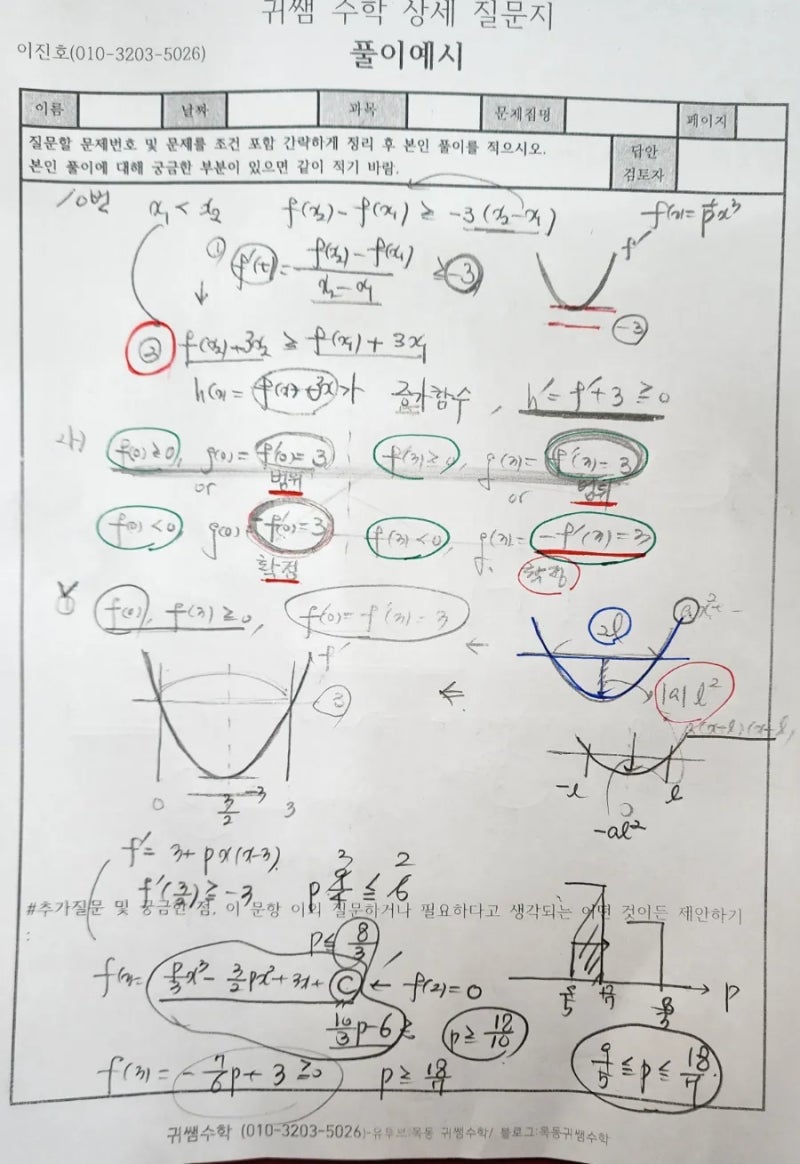 귀쌤 수학 상세 질문지
이진호(010-3203-5026)
풀이예시
이름 날짜 과목 문제집명 페이지
질문할 문제번호 및 문제를 조건 포함 간략하게 정리 후 본인 풀이를 적으시오.
본인 풀이에 대해 궁금한 부분이 있으면 같이 적기 바람.
답안
검토자
10번 x₁ < x₂ f(x₂) - f(x₁) ≥ -3(x₂-x₁)
① f'(t) = f(x₂) - f(x₁) / x₂ - x₁ ≥ -3
f'
-3
② f(x₂)+3x₂ ≥ f(x₁) + 3x₁
h(x)= f(x)+3x가 증가함수, h' = f'+3 ≥ 0
가) f(0) ≥ 0, g(0) = f'(0) = 3 f(3) ≥ 0, g(3) = f'(3) = 3
or 범위 or 범위
f(0) < 0 g(0) = -f'(0) = 3 f(3) < 0, g(3) = -f'(3) = 3
확정 확정
f(0), f(3) ≥ 0, f'(0) = f'(3) = 3
2l
|a|l²
f'
3
0 3/2 -3 3
-l 0 l
-al²
f' = 3 + px(x-3)
f'(3/2) ≥ -3 p 9/4 ≤ 6
3 2
#추가질문 및 궁금한 점, 이 문항 이외 질문하거나 필요하다고 생각되는 어떤 것이든 제안하기
:
p ≤ 8/3
f(x) = p/3 x³ - 3/2 px² + 3x + C ← f(2) = 0
10/3 p - 6 p ≥ 18/10
9/5 18/7 8/3 p
f(3) = -7/6 p + 3 ≥ 0 p ≥ 18/7
9/5 ≤ p ≤ 18/7
귀쌤수학 (010-3203-5026)-유투브:목동 귀쌤수학/ 블로그:목동귀쌤수학